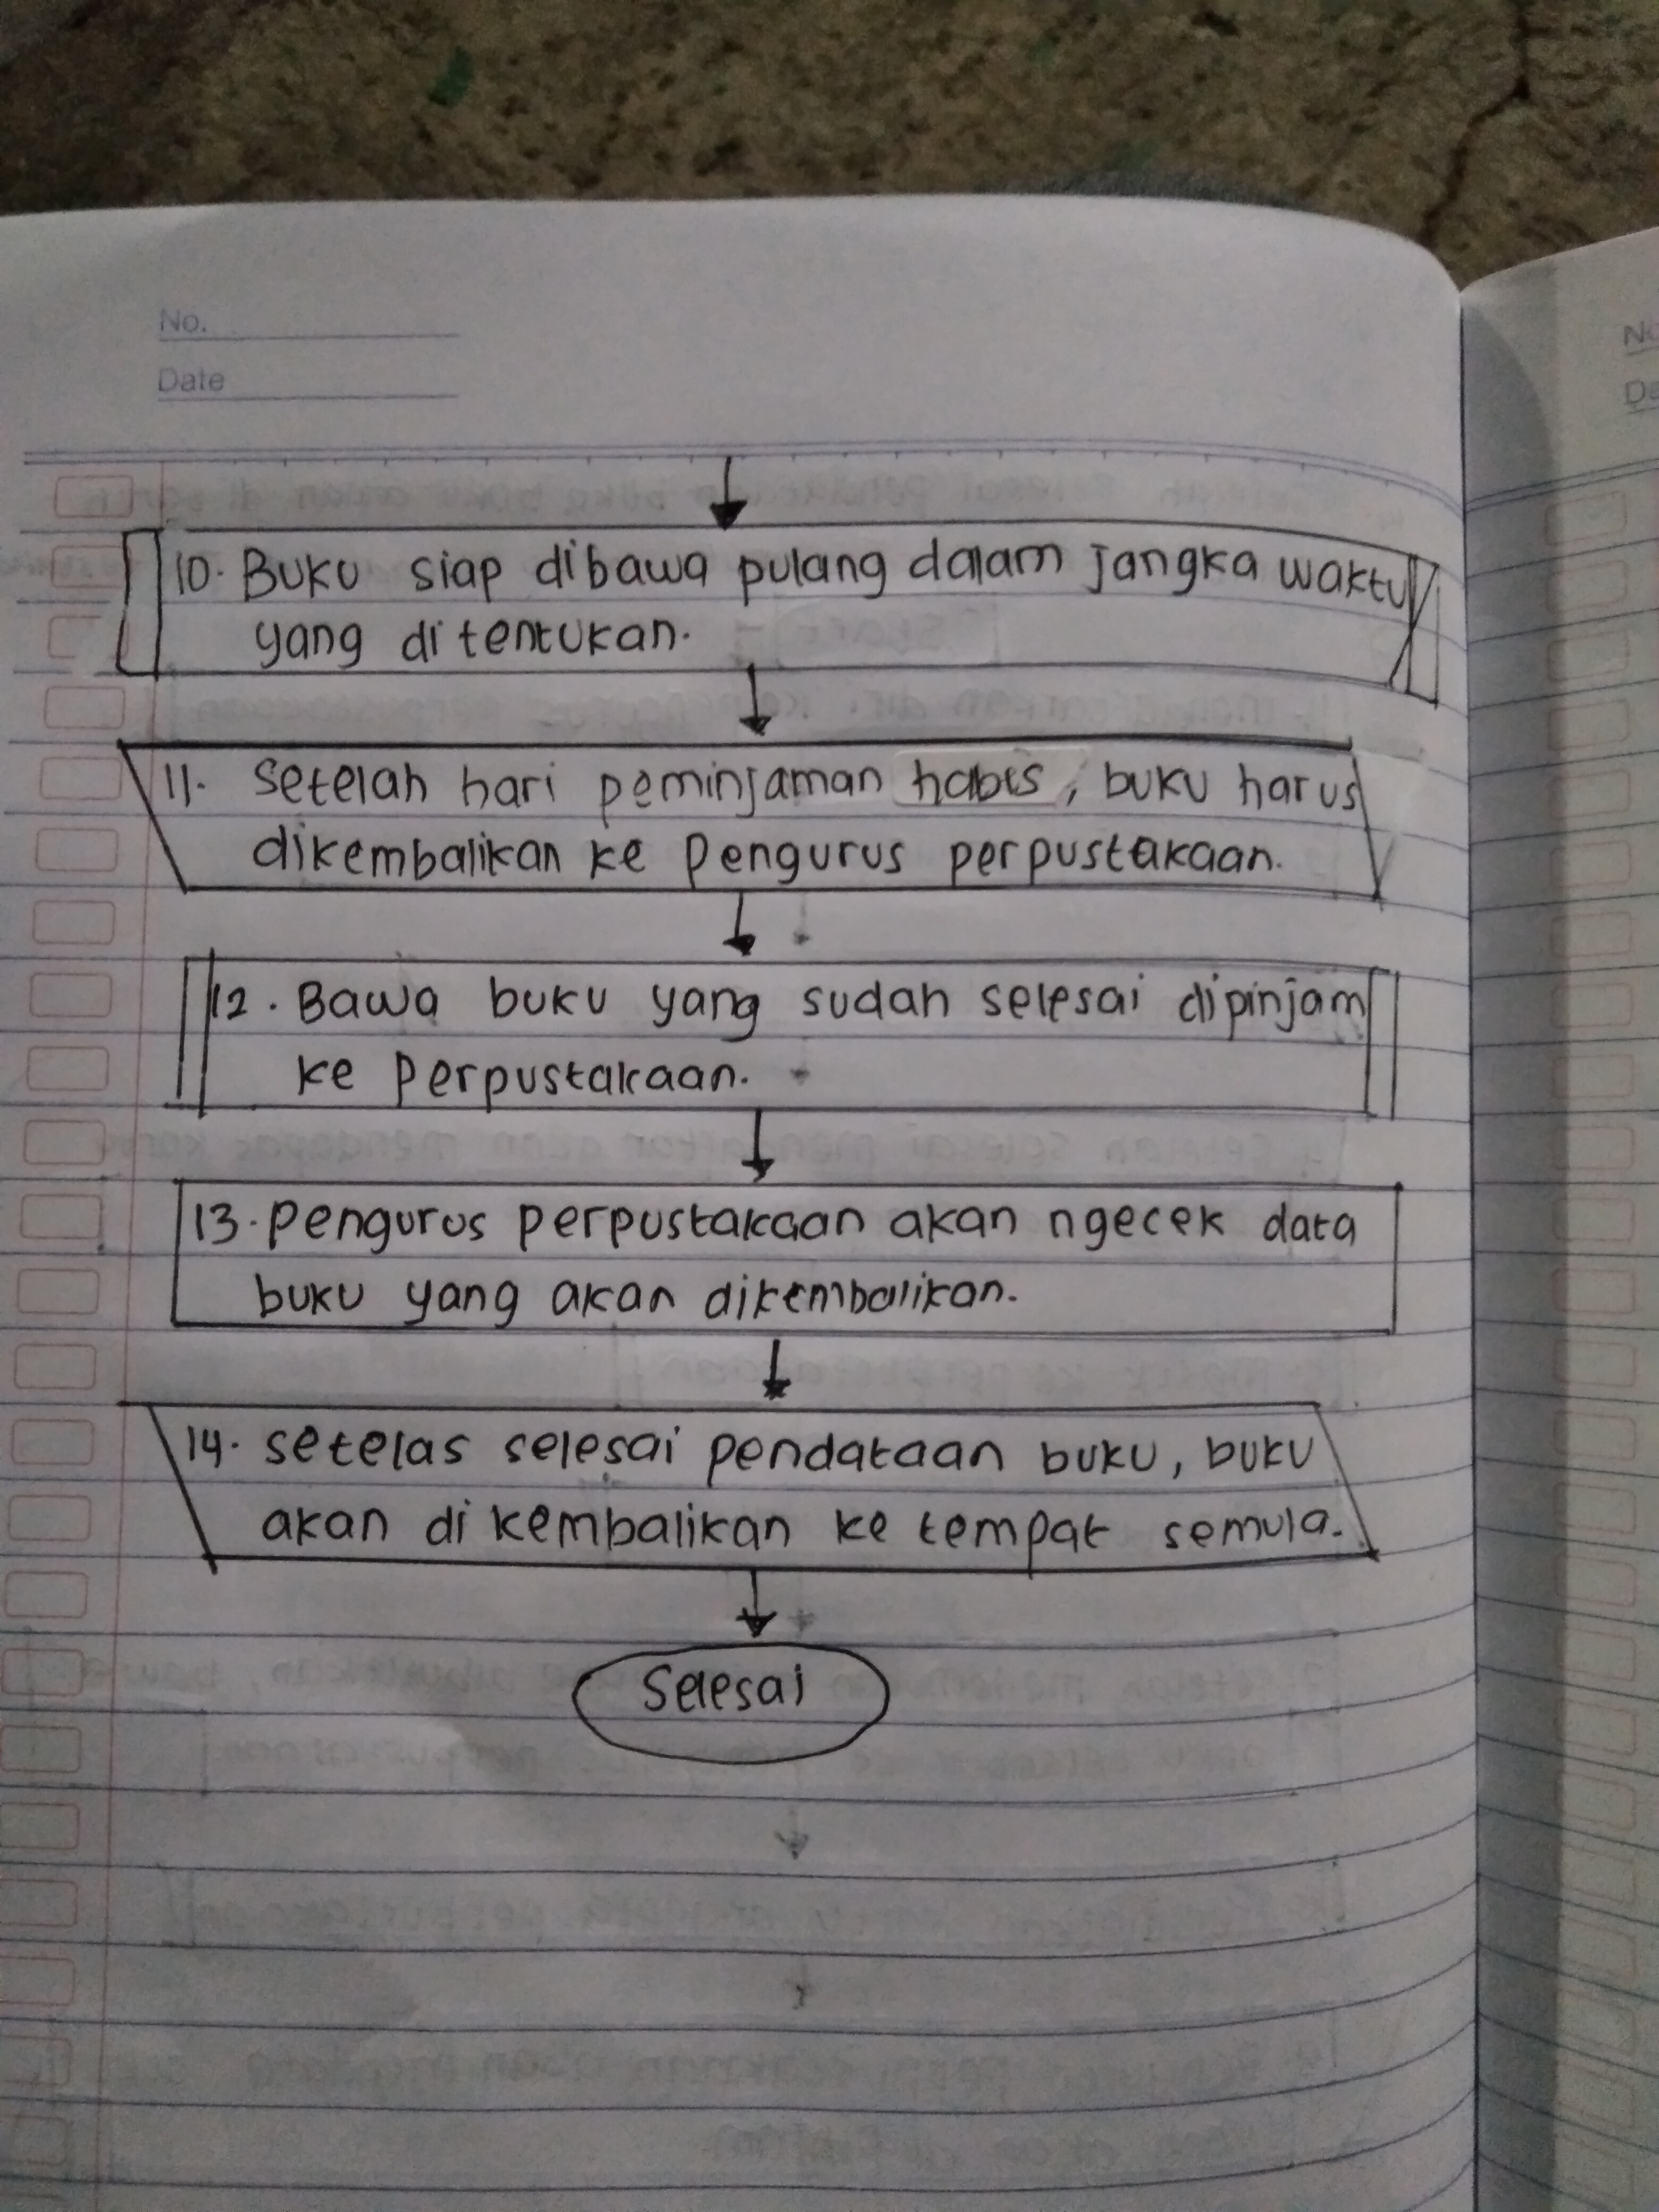 No.
Date
10. Buku siap dibawa pulang dalam jangka waktu
yang ditentukan.
11. Setelah hari peminjaman habis, buku harus
dikembalikan ke Pengurus perpustakaan.
12. Bawa buku yang sudah selesai dipinjam
ke Perpustakaan.
13. Pengurus perpustakaan akan ngecek data
buku yang akan dikembalikan.
14. Setelas selesai pendataan buku, buku
akan di kembalikan ke tempat semula.
Selesai